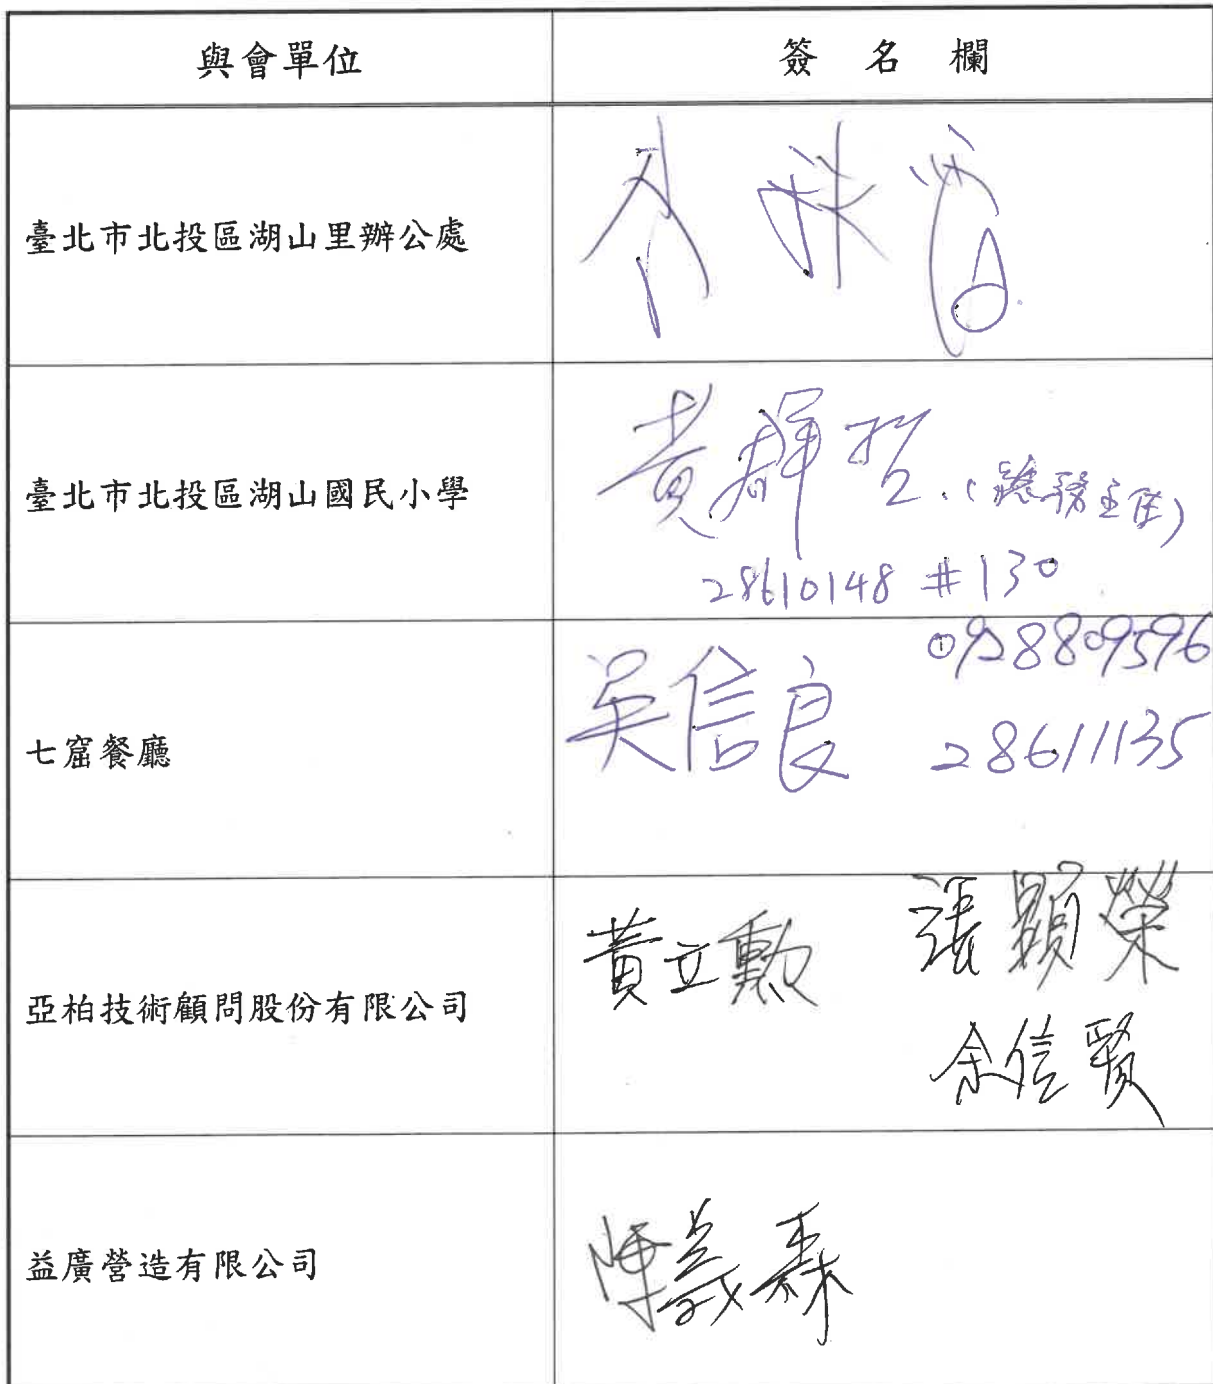 與會單位 簽名欄
臺北市北投區湖山里辦公處
臺北市北投區湖山國民小學 黃群哲 (總務主任)
28610148 #130
七窟餐廳 吳信良 0928809596
28611135
亞柏技術顧問股份有限公司 黃立勳 張顯榮
余信賢
益廣營造有限公司 陳義森